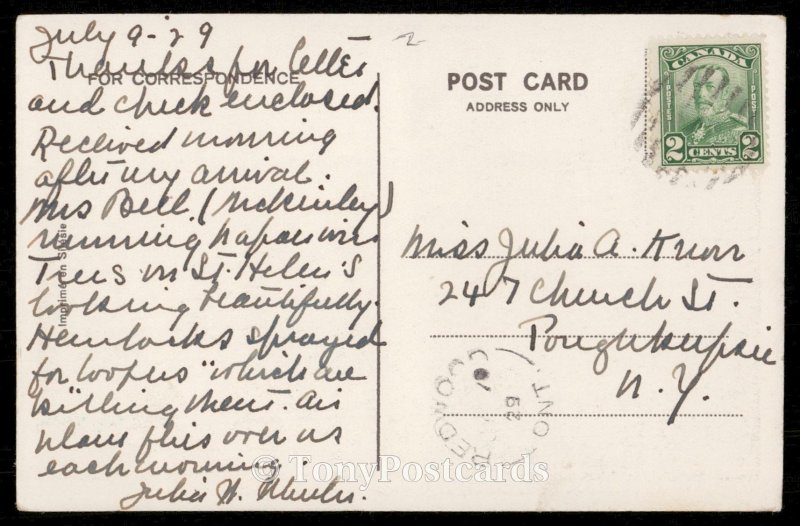 July 9-29
Thanks for letter
FOR CORRESPONDENCE
and check enclosed.
Received morning
after my arrival.
Mrs Bell (McKinley)
running
Trees on St. Helen's
looking beautifully.
Hemlocks sprayed
for loopers "which are
killing them. Air
plane flies over us
each morning.
Julia W. Wheeler.
Imprimé en
POST CARD
ADDRESS ONLY
CANADA
POSTES
POSTAGE
2 CENTS 2
Miss Julia A. Knorr
247 Church St.
Poughkeepsie
N.Y.
REDWOOD
ONT.
29
© TonyPostcards